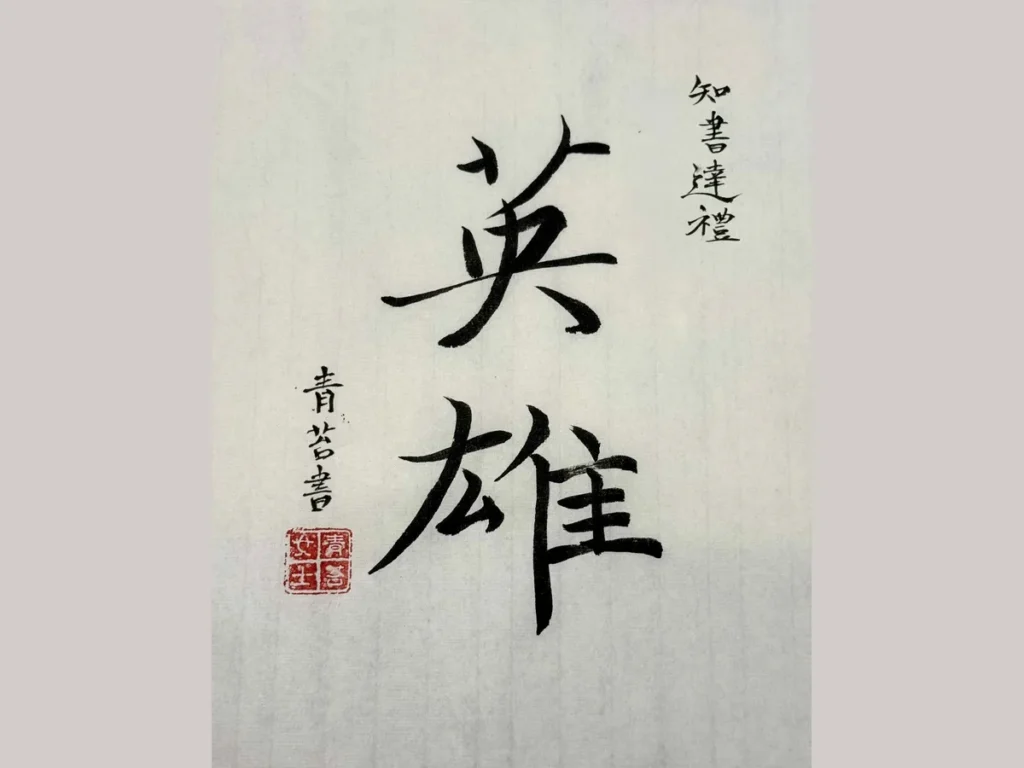 知書達禮
英雄
青苔書
青苔
女士